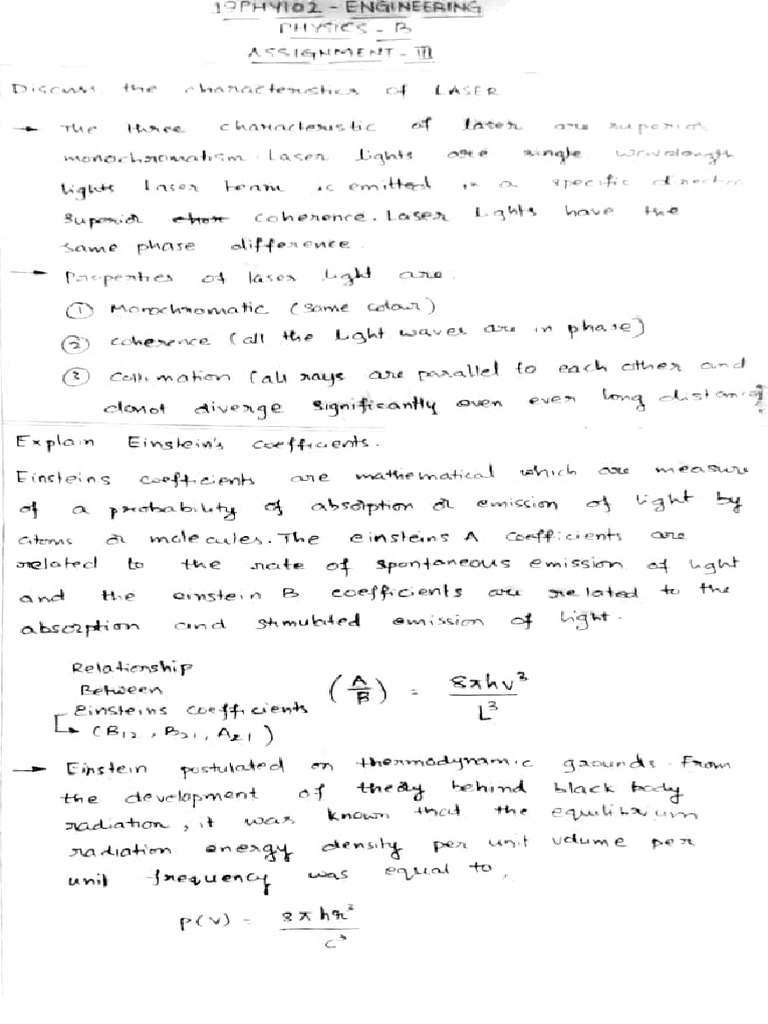 19PHY102 - ENGINEERING
PHYSICS - B
ASSIGNMENT - III
Discuss the characteristics of LASER
→ The three characteristic of laser are superior
monochromatism. Laser lights are single wavelength
lights laser beam is emitted in a specific direction
superior coherence. Laser lights have the
same phase difference.
→ Properties of laser light are:
① Monochromatic (same colour)
② coherence (all the light waves are in phase)
③ Collimation (all rays are parallel to each other and
donot diverge significantly even over long distances
Explain Einstein's coefficients.
Einsteins coefficients are mathematical which are measure
of a probability of absorption or emission of light by
atoms or molecules. The einsteins A coefficients are
related to the rate of spontaneous emission of light
and the einstein B coefficients are related to the
absorption and stimulated emission of light.
Relationship
Between
Einsteins coefficients
↳ (B12, B21, A21)
(A/B) = 8πhν³/L³
→ Einstein postulated on thermodynamic grounds. From
the development of theory behind black body
radiation, it was known that the equilibrium
radiation energy density per unit volume per
unit frequency was equal to,
P(ν) = 8πhr²/c³